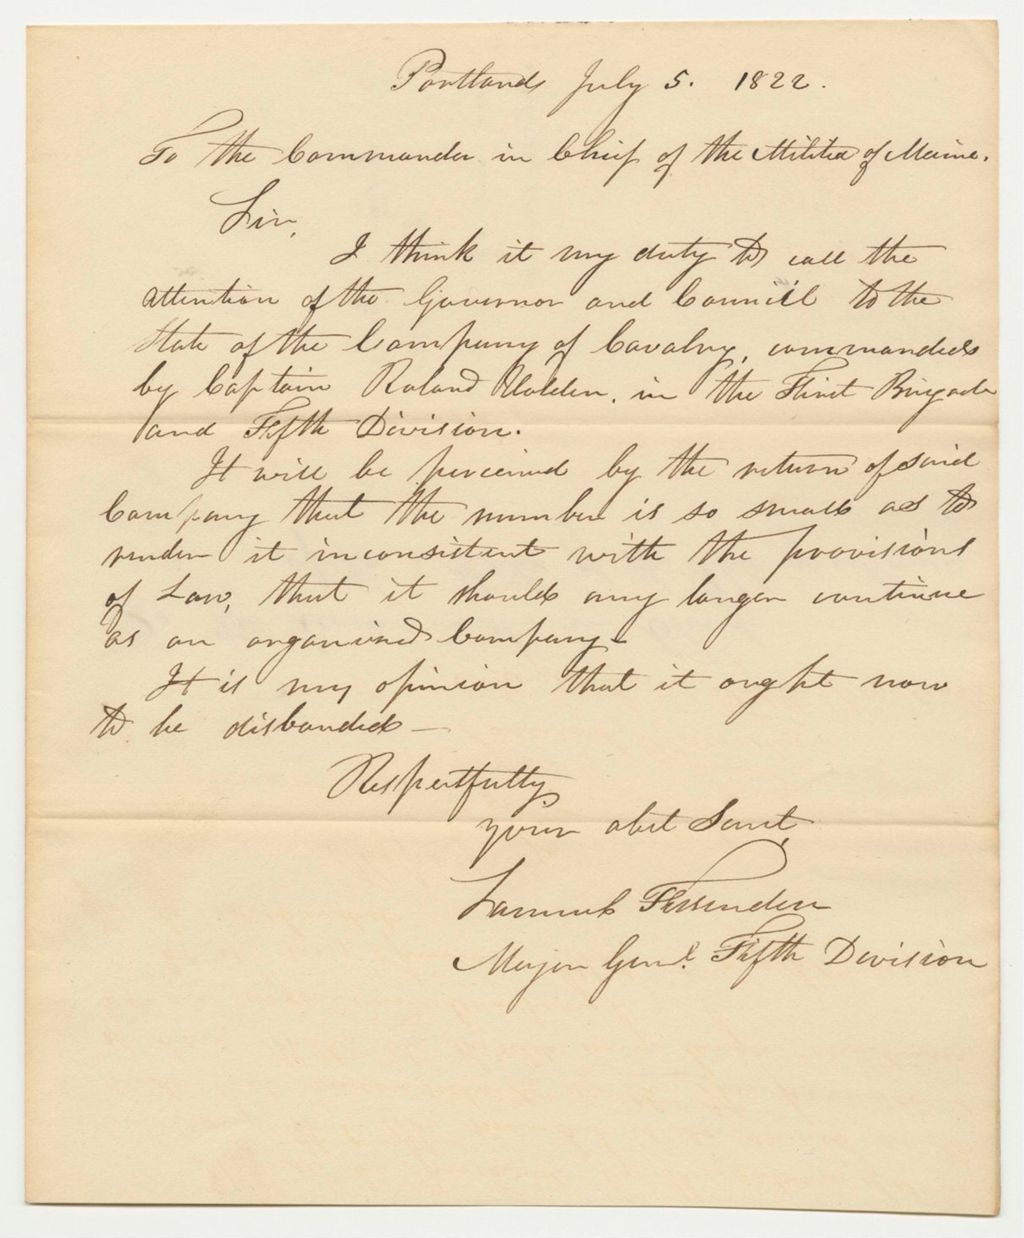 Portland July 5. 1822.
To the Commander in Chief of the Militia of Maine.
Sir,
I think it my duty to call the
attention of the Governor and Council to the
State of the Company of Cavalry, commanded
by Captain Roland Holden. in the First Brigade
and Fifth Division.
It will be perceived by the return of said
Company that the number is so small as to
render it inconsistent with the provisions
of Law, that it should any longer continue
as an organized Company—
It is my opinion that it ought now
to be disbanded—
Respectfully,
your obet Servt,
Samuel Fessenden
Major Genl. Fifth Division